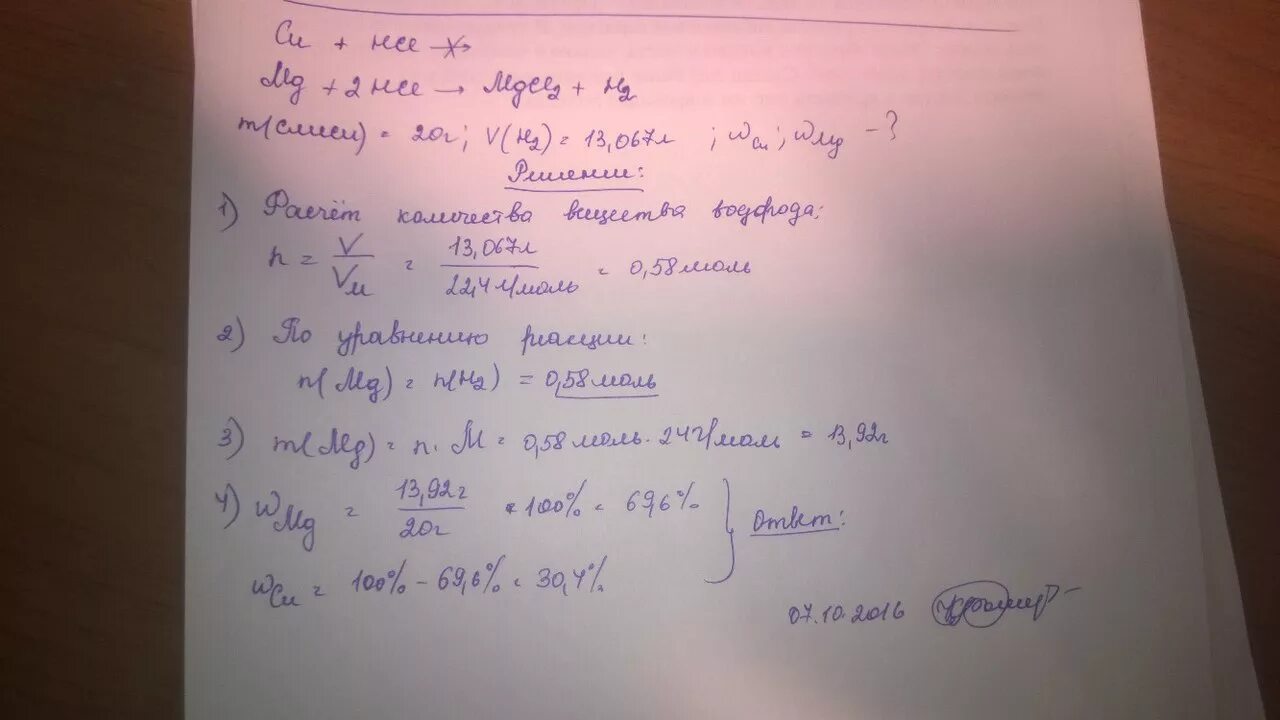 Cu + HCl →
Mg + 2 HCl → MgCl₂ + H₂
m(смеси) = 20г; V(H₂) = 13,067л ; ω Cu ; ω Mg - ?
Решение:
1) Расчёт количества вещества водорода;
n = V/Vм = 13,067л/22,4 л/моль = 0,58 моль
2) По уравнению реакции:
n(Mg) = n(H₂) = 0,58 моль
3) m(Mg) = n · M = 0,58 моль · 24 г/моль = 13,92г
4) ω Mg = 13,92г/20г · 100% = 69,6% } Ответ:
ω Cu = 100% - 69,6% = 30,4%
07.10.2016